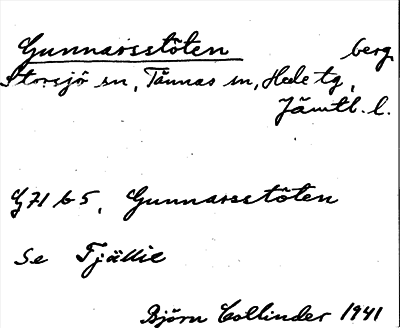 Gunnarsstöten berg
Storsjö sn, Tännäs sn, Hede tg,
Jämtl. l.
G71 b 5, Gunnarsstöten
Se Fjällie
Björn Collinder 1941